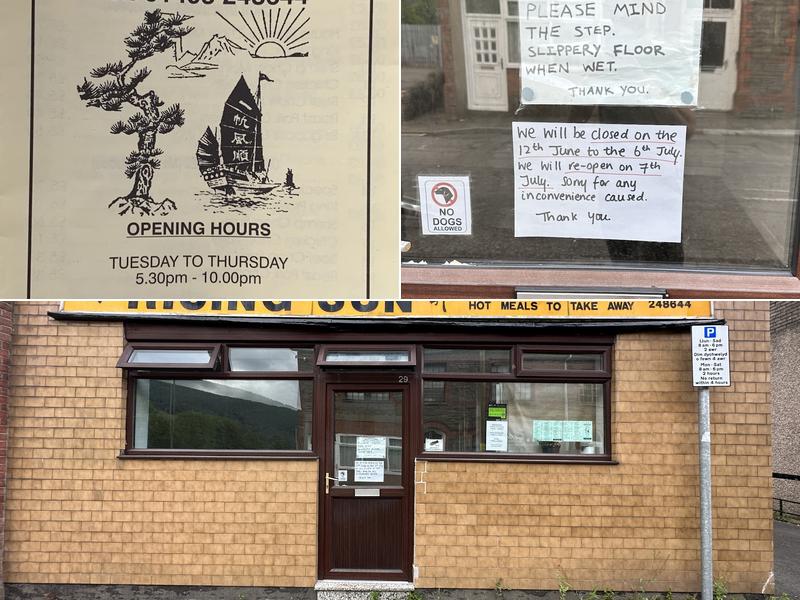 帆
風
順
OPENING HOURS
TUESDAY TO THURSDAY
5.30pm - 10.00pm
PLEASE MIND
THE STEP.
SLIPPERY FLOOR
WHEN WET.
THANK YOU.
We will be closed on the
12th June to the 6th July.
We will re-open on 7th
July. Sorry for any
inconvenience caused.
Thank you
NO
DOGS
ALLOWED
RISING SUN
HOT MEALS TO TAKE AWAY 248644
29
P
Llun - Sad
8 am - 6 pm
2 awr
Dim dychwelyd
o fewn 4 awr
Mon - Sat
8 am - 6 pm
2 hours
No return
within 4 hours